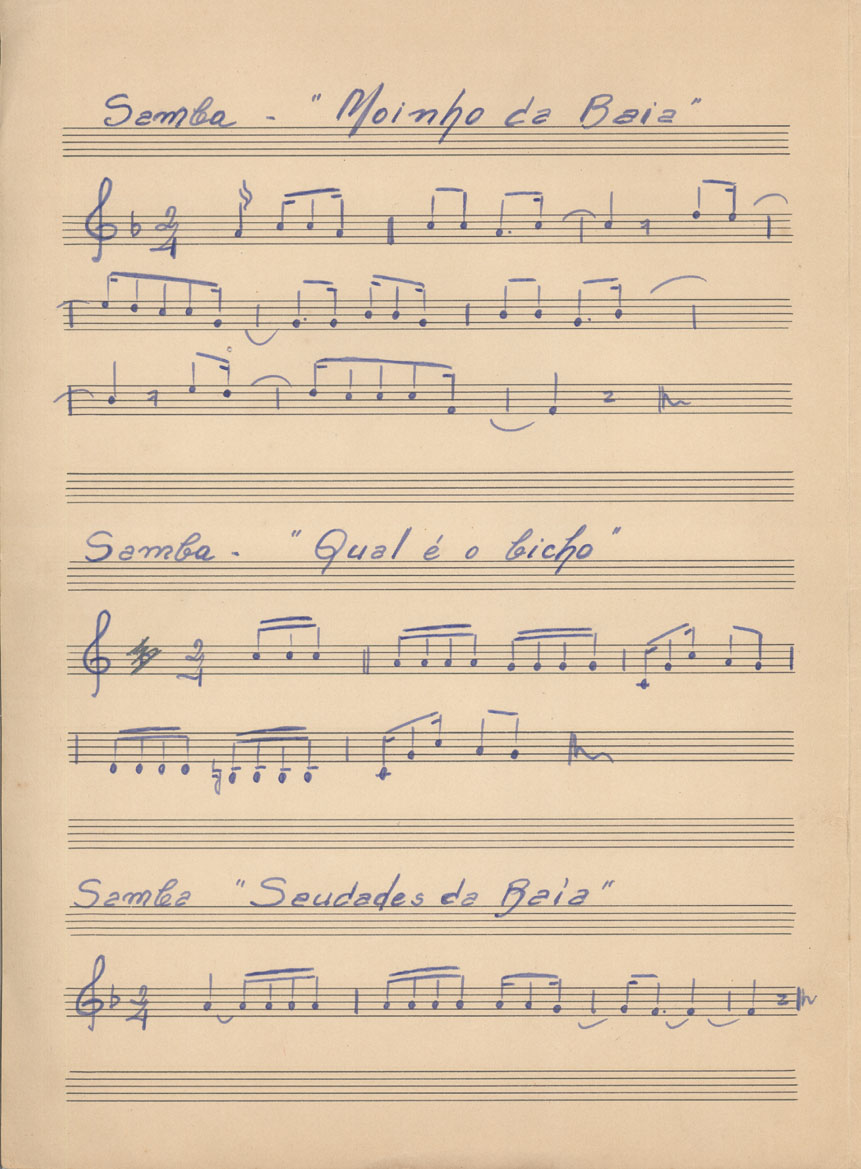 Samba - "Moinho da Baia"
2/4
Samba - "Qual é o bicho"
2/4
Samba "Saudades da Baia"
2/4